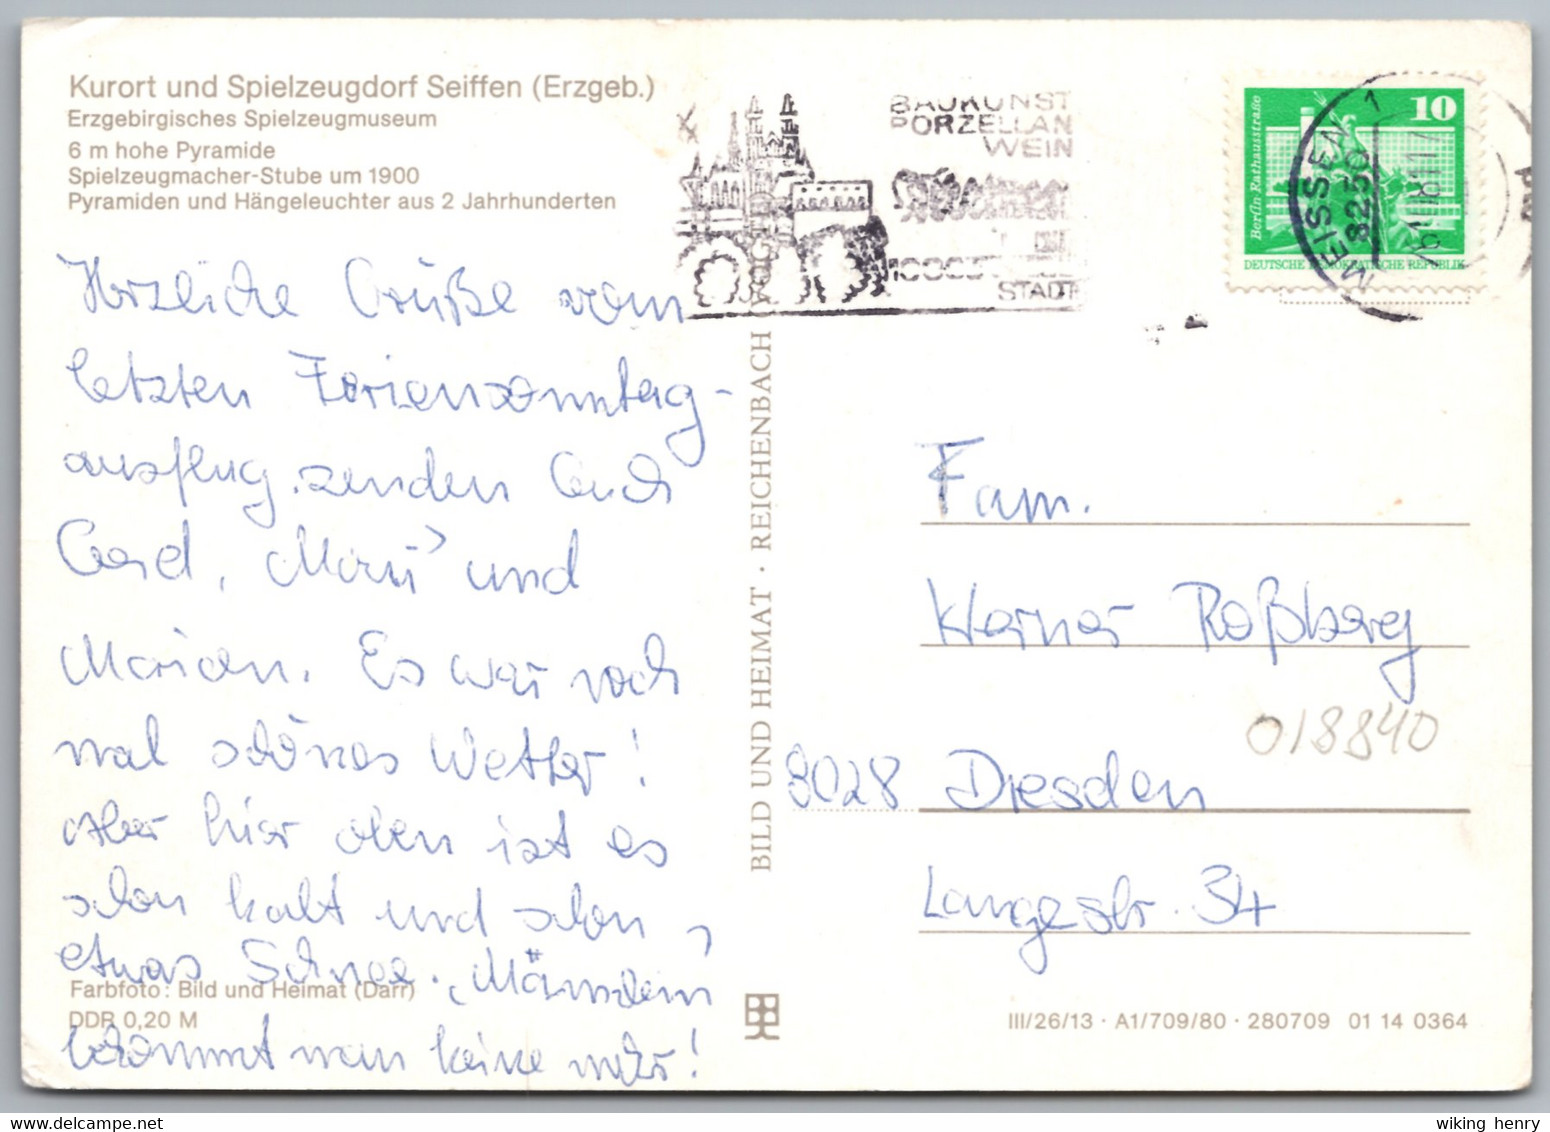 Kurort und Spielzeugdorf Seiffen (Erzgeb.)
Erzgebirgisches Spielzeugmuseum
6 m hohe Pyramide
Spielzeugmacher-Stube um 1900
Pyramiden und Hängeleuchter aus 2 Jahrhunderten
Herzliche Grüße vom
letzten Feriensonntag-
ausflug senden Euch
Gerd, Mari und
Marian. Es war noch
mal schönes Wetter!
Aber hier oben ist es
schon kalt und schon
etwas Schnee. „Männdein"
bekommt man keine mehr!
Farbfoto: Bild und Heimat (Darr)
DDR 0,20 M
BILD UND HEIMAT · REICHENBACH
BAUKUNST
PORZELLAN
WEIN
STADT
10
Berlin, Rathausstraße
DEUTSCHE DEMOKRATISCHE REPUBLIK
MEISSEN 1
8250
Fam.
Werner Roßberg
018840
8028 Dresden
Langestr. 34
III/26/13 · A1/709/80 · 280709 01 14 0364
wiking henry